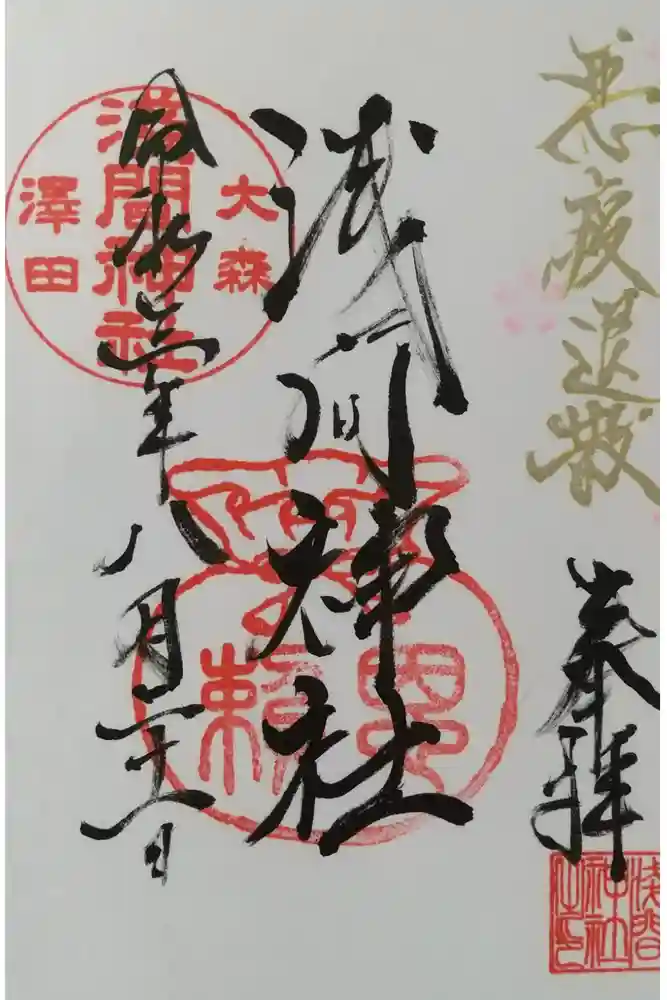 悪疫退散
奉拝
浅間神社
浅間神社
大森
浅間神社
澤田
令和三年八月二十一日